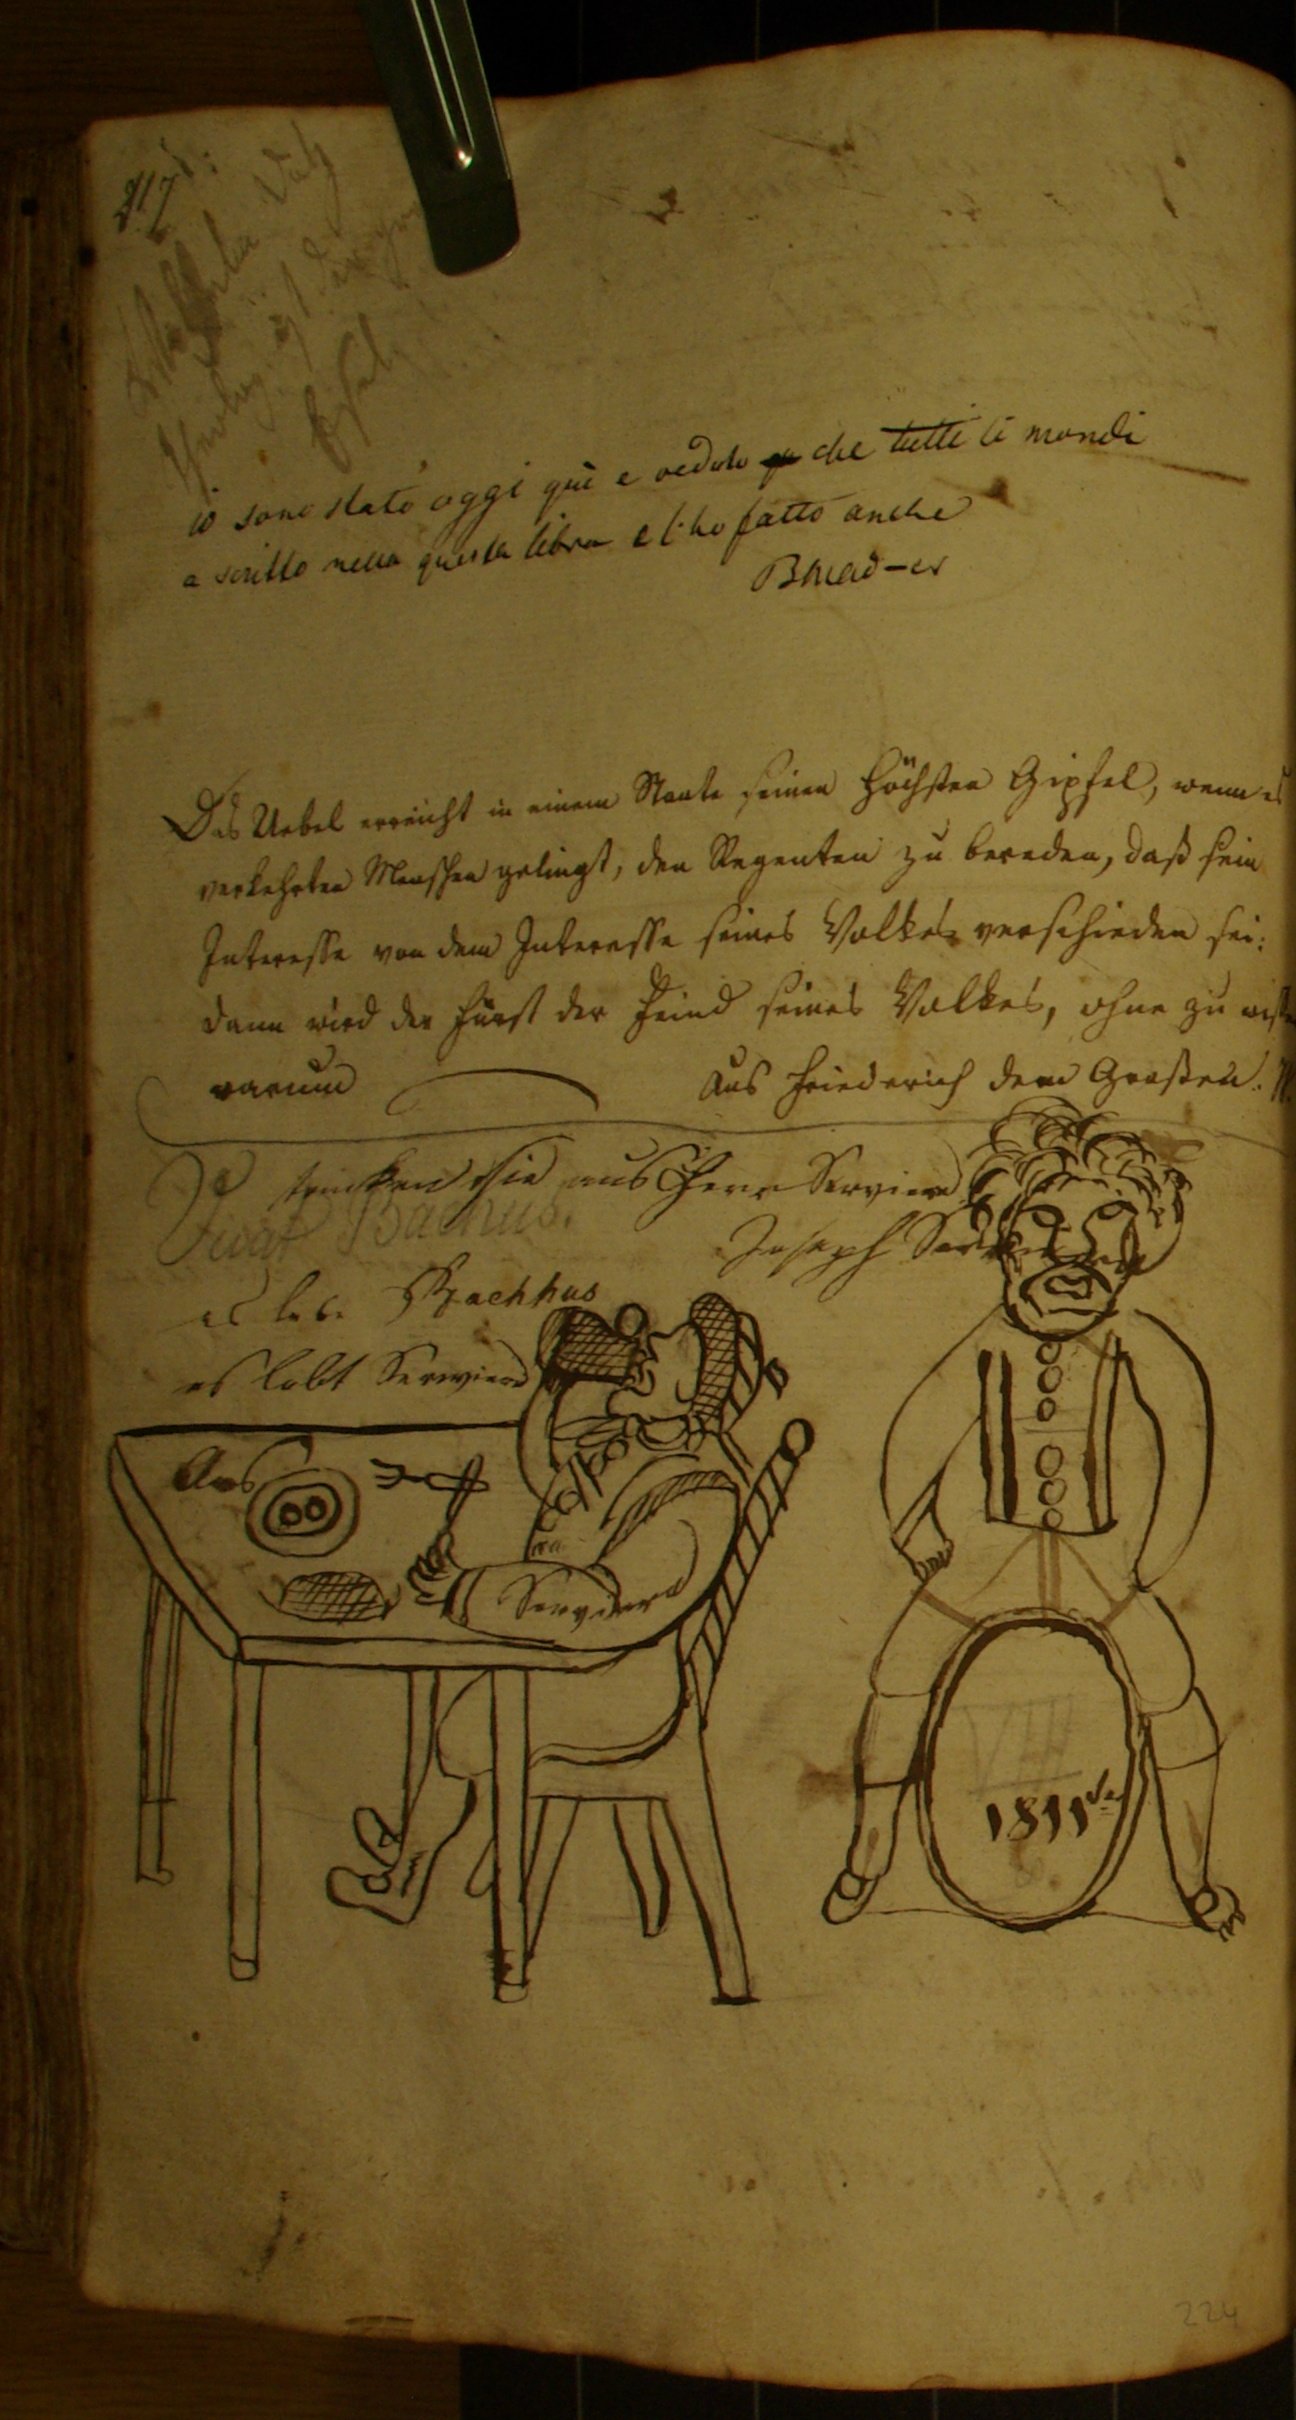 io sono stato oggi qui e veduto che tutti li mondi
a scritto nella questa libra e l'ho fatto anche
Das Uebel erreicht in einem Staate seinen höchsten Gipfel, wenn es
verkehrten Menschen gelingt, den Regenten zu bereden, daß sein
Interesse von dem Interesse seines Volkes verschieden sei:
dann wird der Fürst der Feind seines Volkes, ohne zu wissen
warum
Aus Friederich dem Großen.
trinken sie aus Herr Serviere
Vivat Bachus.
Joseph
es lebe Bachhus
es lebt Serwiere
Aus
Serviere
VIII
1811
224